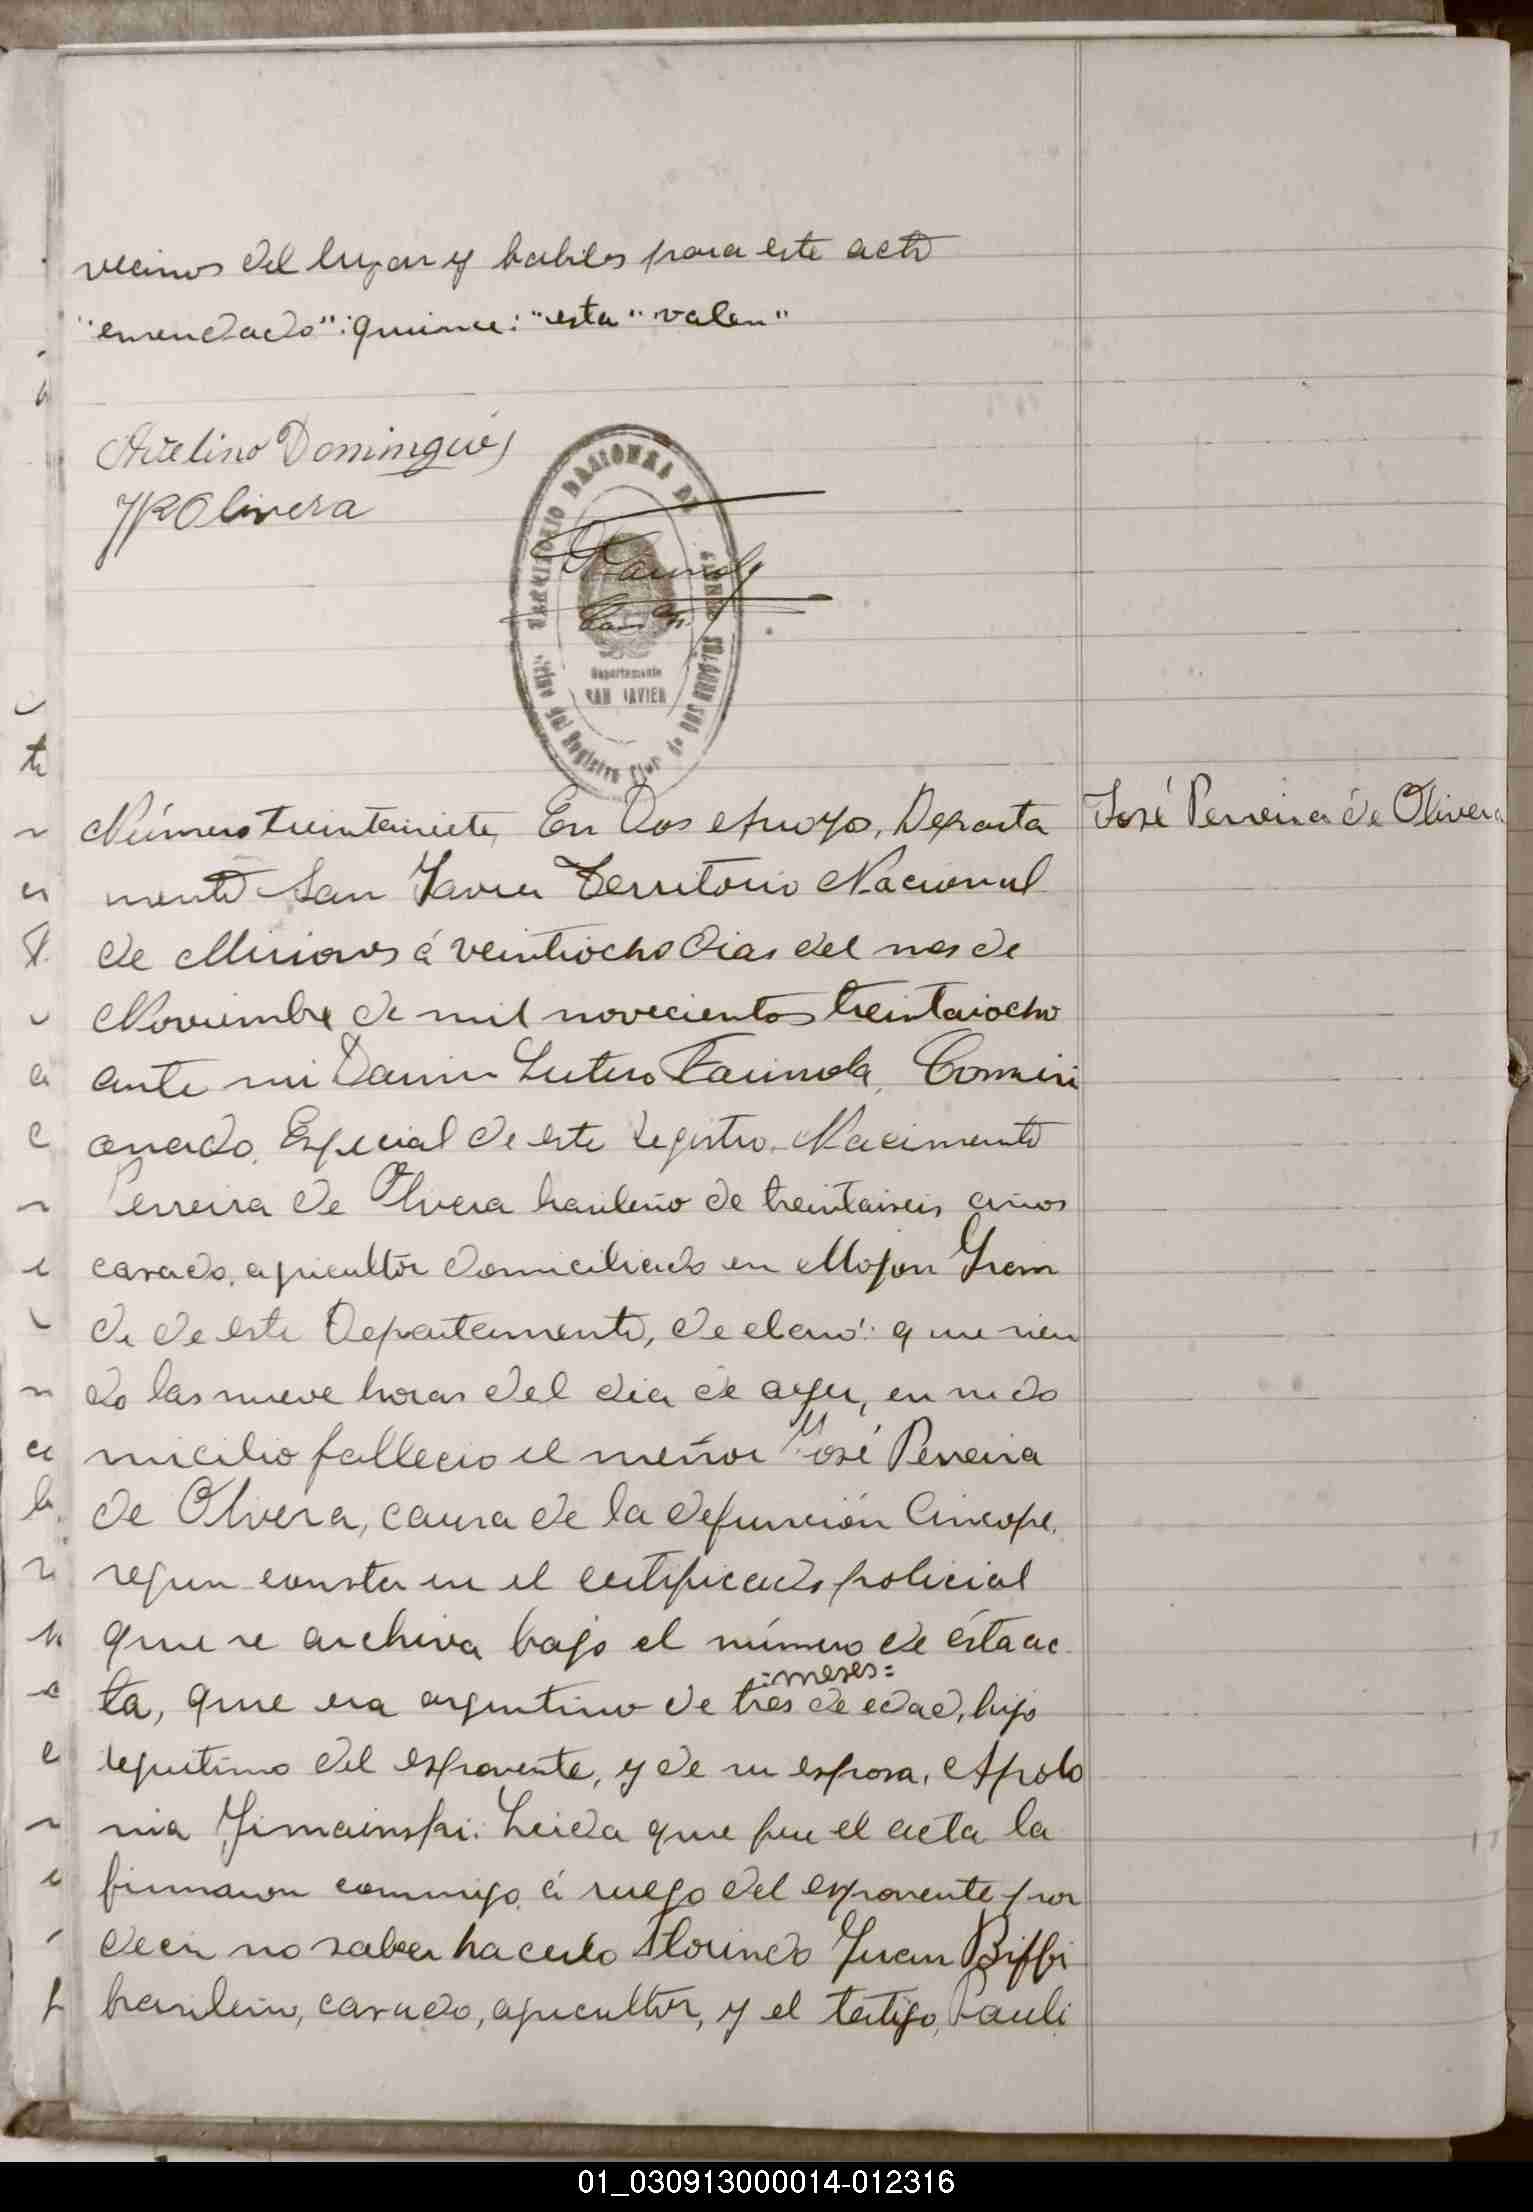 vecinos del lugar y habiles para este acto
"enmendado": quince: "esta" valen"
Avelino Domingués
JR Olivera
TERRITORIO NACIONAL DE MISIONES
Departamento
SAN JAVIER
Oficina del Registro Civil de DOS ARROYOS
Número treintaisiete, En Dos Arroyo, Departa
José Perreira de Olivera
mento San Javier Territorio Nacional
de Misiones á veintiocho dias del mes de
Noviembre de mil novecientos treintaiocho
ante mi Darwin Lutero Farinola, Comisi
onado Especial de este Registro. Nacimento
Perreira de Olivera brasileño de treintaiseis años
casado, agricultor domiciliado en Mojon Gran
de de este Departamento, declaró: que sien
do las nueve horas del dia de ayer, en su do
micilio fallecio el meñor José Perreira
de Olivera, causa de la defunción Cincope,
segun consta en el certificado policial
que se archiva bajo el número de ésta ac
=meses=
ta, que era argentino de tres de edad, hijo
legitimo del esponente, y de su esposa, Apolo
nia Jimainski. Leida que fue el acta la
firmaron conmigo á ruego del esponente por
decir no saber hacerlo Florindo Juan Biffi
brasileño, casado, agricultor, y el testigo, Pauli
01_030913000014-012316